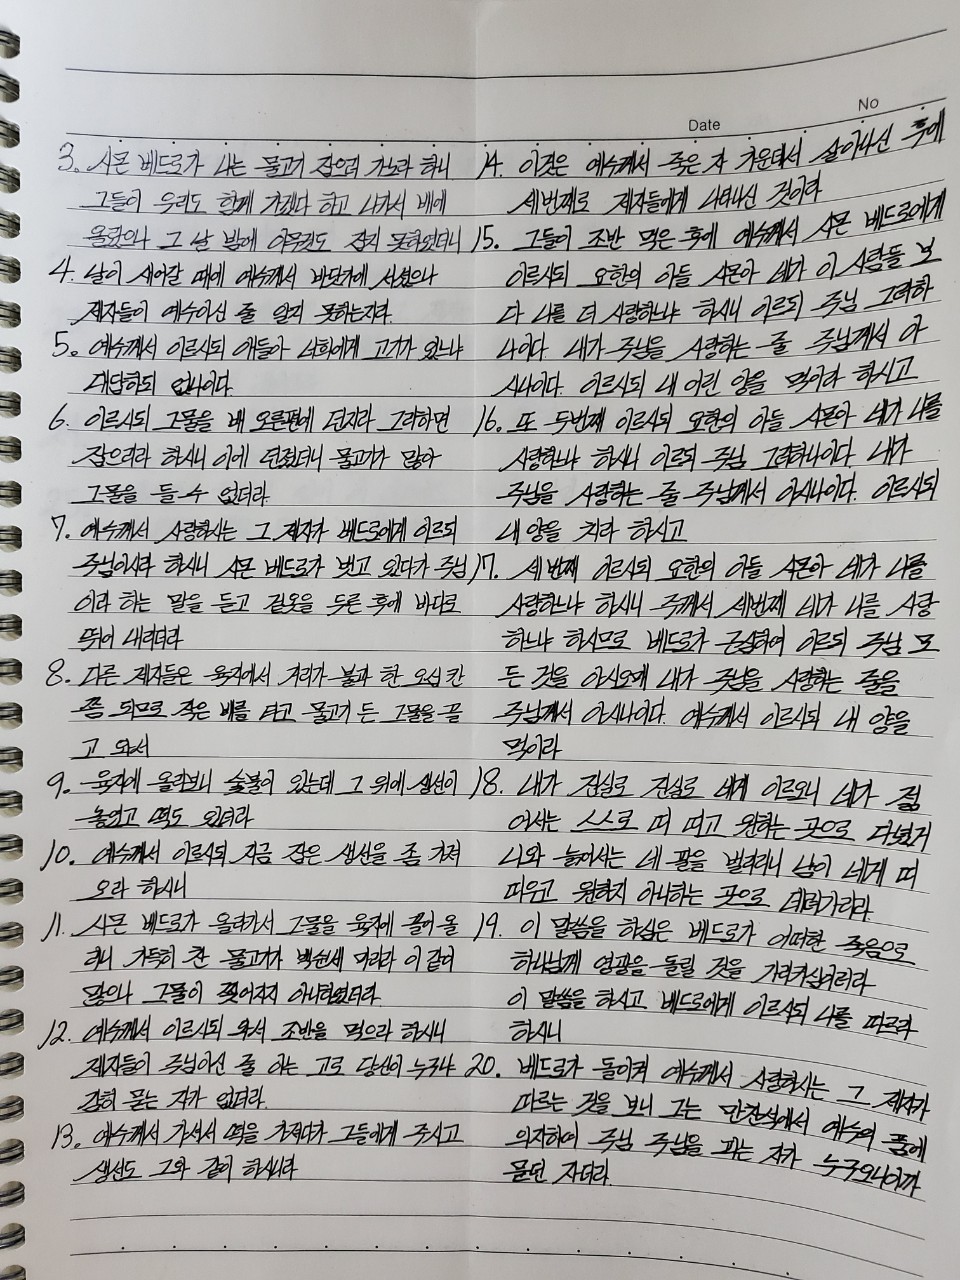 Date
No
3. 시몬 베드로가 나는 물고기 잡으러 가노라 하니
그들이 우리도 함께 가겠다 하고 나가서 배에
올랐으나 그 날 밤에 아무것도 잡지 못하였더니
4. 날이 새어갈 때에 예수께서 바닷가에 서셨으나
제자들이 예수이신 줄 알지 못하는지라
5. 예수께서 이르시되 얘들아 너희에게 고기가 있느냐
대답하되 없나이다.
6. 이르시되 그물을 배 오른편에 던지라 그리하면
잡으리라 하시니 이에 던졌더니 물고기가 많아
그물을 들 수 없더라.
7. 예수께서 사랑하시는 그 제자가 베드로에게 이르되
주님이시라 하시니 시몬 베드로가 벗고 있다가 주님
이라 하는 말을 듣고 겉옷을 두른 후에 바다로
뛰어 내리더라
8. 다른 제자들은 육지에서 거리가 불과 한 오십 칸
쯤 되므로 작은 배를 타고 물고기 든 그물을 끌
고 와서
9. 육지에 올라보니 숯불이 있는데 그 위에 생선이
놓였고 떡도 있더라
10. 예수께서 이르시되 지금 잡은 생선을 좀 가져
오라 하시니
11. 시몬 베드로가 올라가서 그물을 육지에 끌어 올
리니 가득히 찬 물고기가 백쉰세 마리라 이 같이
많으나 그물이 찢어지지 아니하였더라
12. 예수께서 이르시되 와서 조반을 먹으라 하시니
제자들이 주님이신 줄 아는 고로 당신이 누구냐
감히 묻는 자가 없더라.
13. 예수께서 가셔서 떡을 가져다가 그들에게 주시고
생선도 그와 같이 하시니라
14. 이것은 예수께서 죽은 자 가운데서 살아나신 후에
세번째로 제자들에게 나타나신 것이라
15. 그들이 조반 먹은 후에 예수께서 시몬 베드로에게
이르시되 요한의 아들 시몬아 네가 이 사람들 보
다 나를 더 사랑하느냐 하시니 이르되 주님 그러하
나이다. 내가 주님을 사랑하는 줄 주님께서 아
시나이다. 이르시되 내 어린 양을 먹이라 하시고
16. 또 두번째 이르시되 요한의 아들 시몬아 네가 나를
사랑하느냐 하시니 이르되 주님 그러하나이다. 내가
주님을 사랑하는 줄 주님께서 아시나이다. 이르시되
내 양을 치라 하시고
17. 세번째 이르시되 요한의 아들 시몬아 네가 나를
사랑하느냐 하시니 주께서 세번째 네가 나를 사랑
하느냐 하시므로 베드로가 근심하여 이르되 주님 모
든 것을 아시오매 내가 주님을 사랑하는 줄을
주님께서 아시나이다. 예수께서 이르시되 내 양을
먹이라
18. 내가 진실로 진실로 네게 이르노니 네가 젊
어서는 스스로 띠 띠고 원하는 곳으로 다녔거
니와 늙어서는 네 팔을 벌리리니 남이 네게 띠
띠우고 원하지 아니하는 곳으로 데려가리라.
19. 이 말씀을 하심은 베드로가 어떠한 죽음으로
하나님께 영광을 돌릴 것을 가리키심이러라
이 말씀을 하시고 베드로에게 이르시되 나를 따르라
하시니
20. 베드로가 돌이켜 예수께서 사랑하시는 그 제자가
따르는 것을 보니 그는 만찬석에서 예수의 품에
의지하여 주님 주님을 파는 자가 누구오니이까
묻던 자더라.